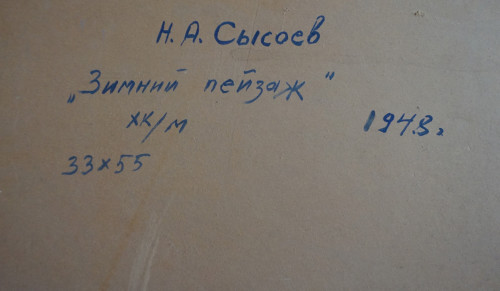 Н. А. Сысоев
„Зимний пейзаж"
хк/м 1948г
33х55